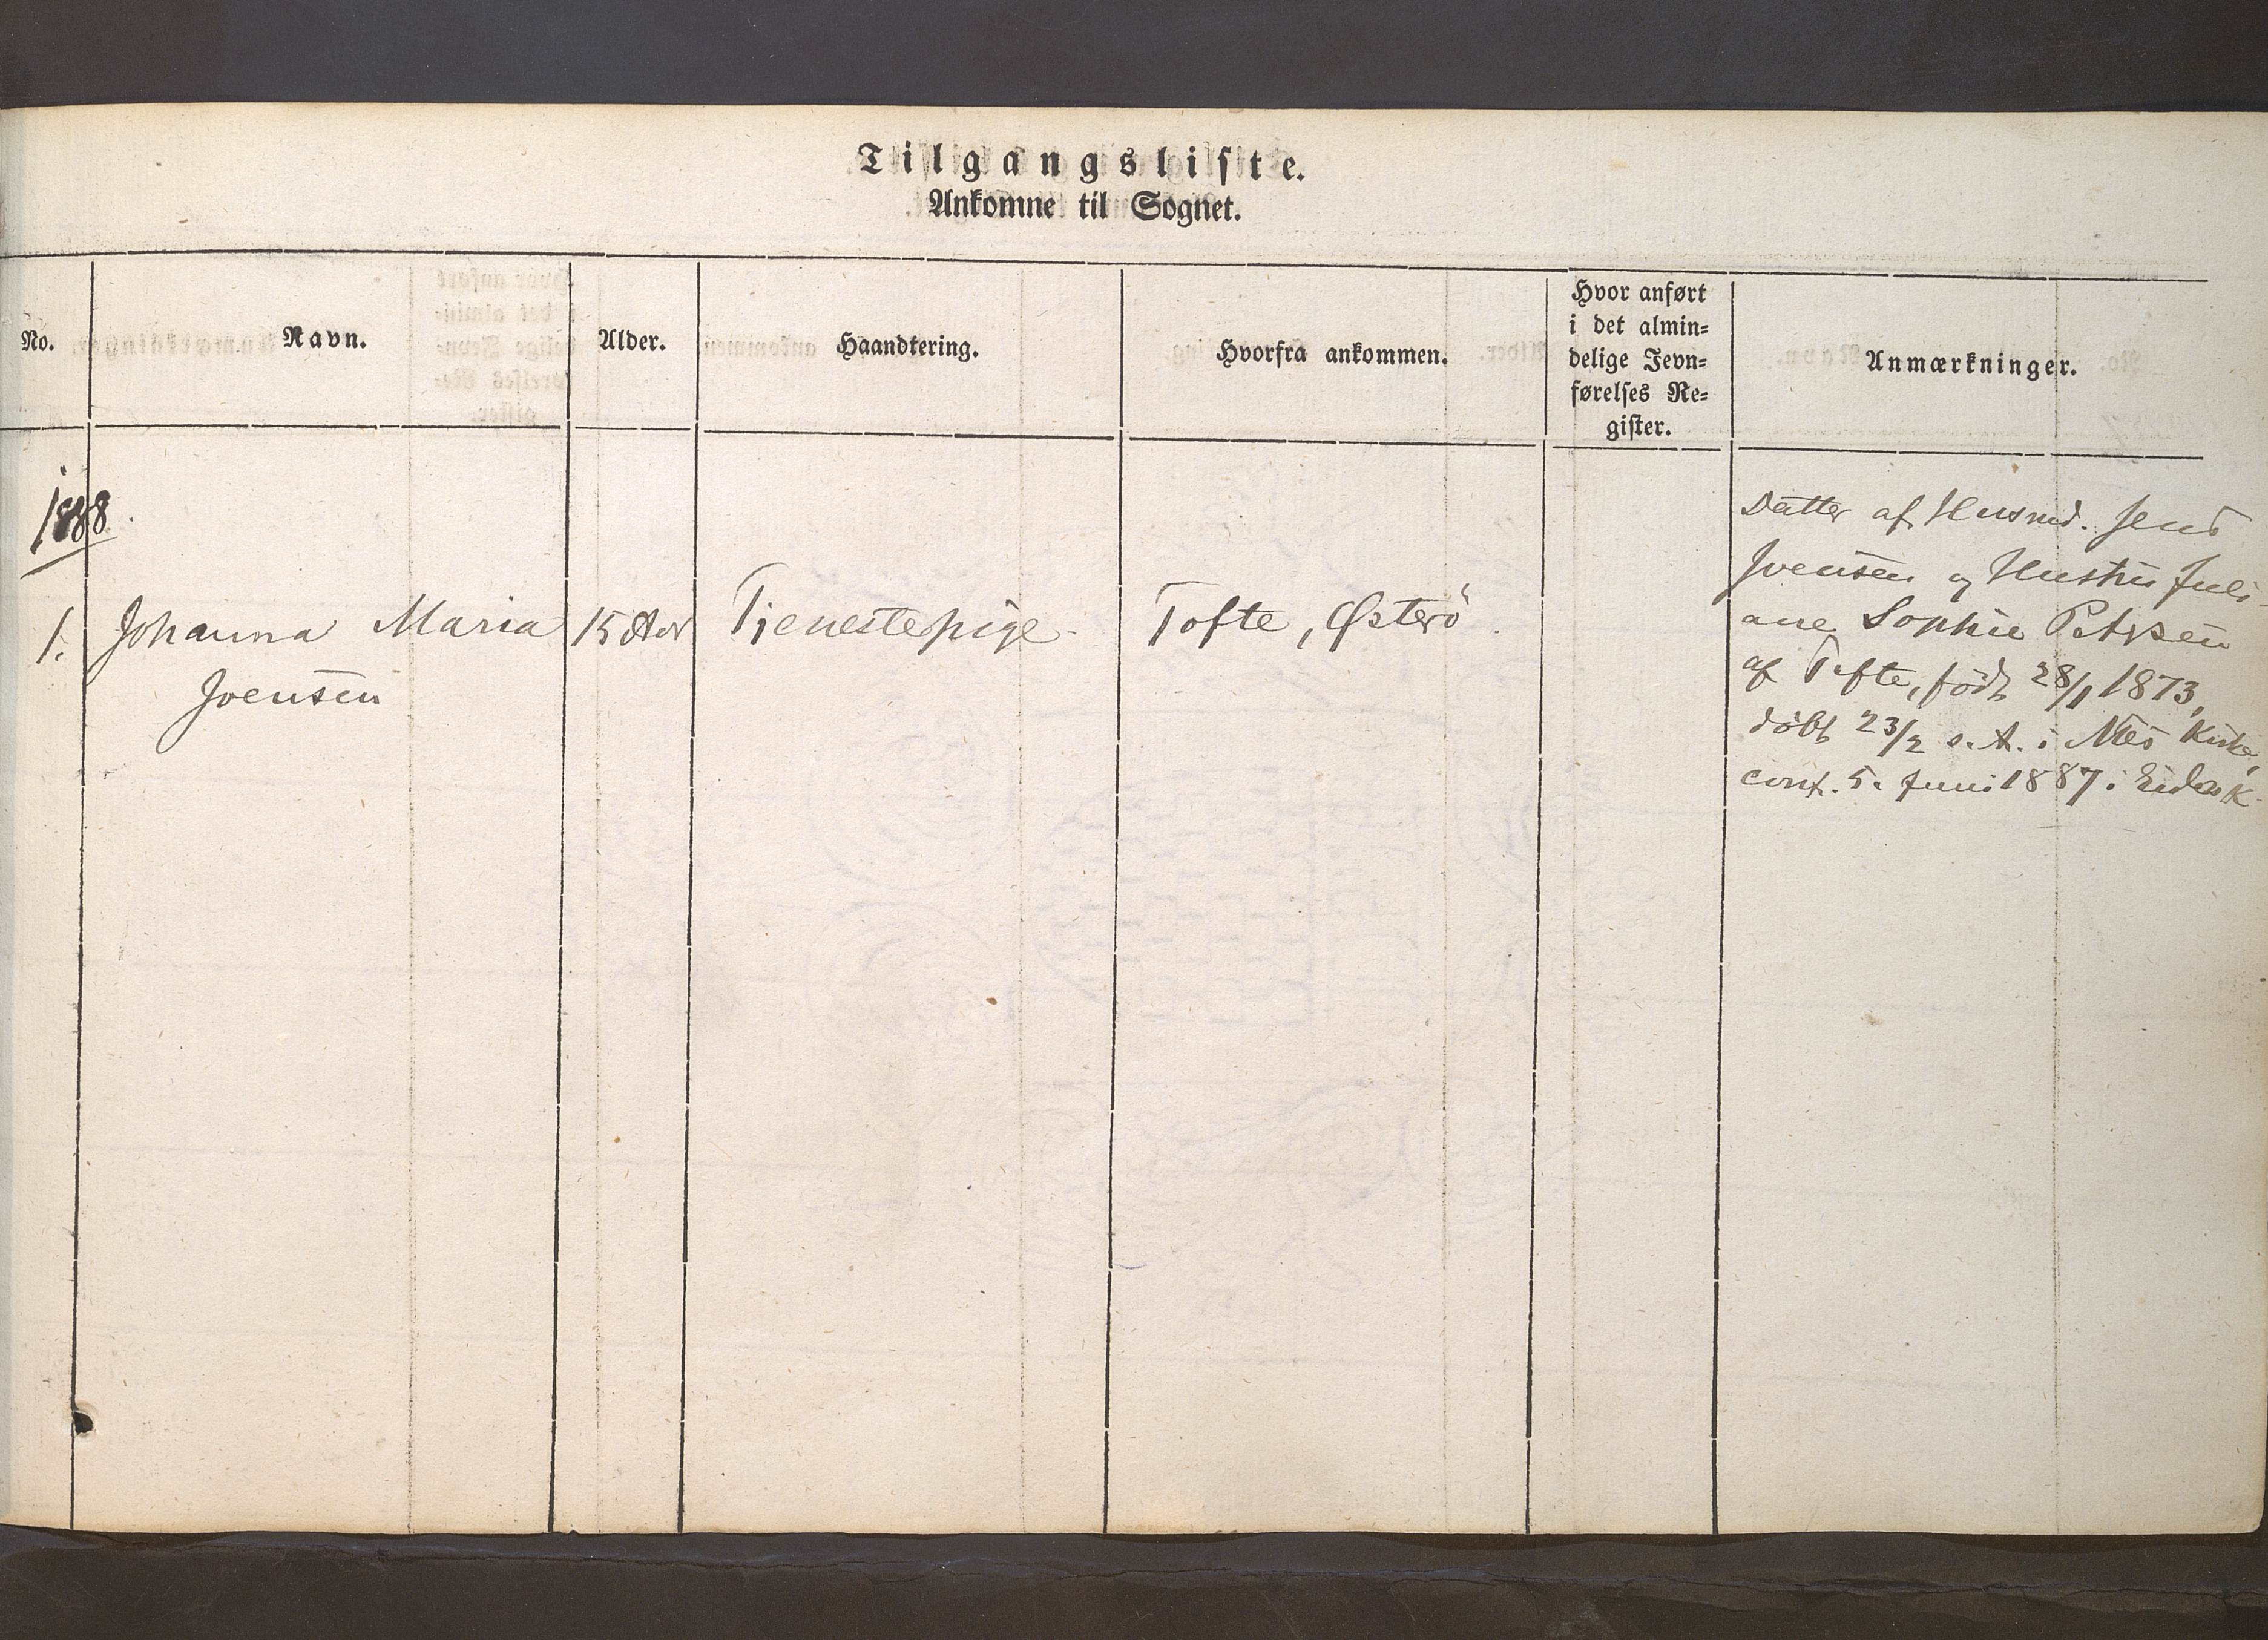 Tilgangsliste.
Ankomne til Sognet.
No.
Navn.
Alder.
Haandtering.
Hvorfra ankommen.
Hvor anført
i det almin=
delige Jevn=
førelses Re=
gister.
Anmærkninger.
1888.
1.
Johanna Maria
Joensen
15 Aar
Tjenestepige
Tofte, Østerö.
Datter af Husmd. Jens
Joensen og Hustru Juli-
ane Sophie Petersen
af Tofte, födt 28/1 1873,
döbt 23/2 s. A. i Næs Kirke,
conf. 5. Juni 1887 i Eides K.